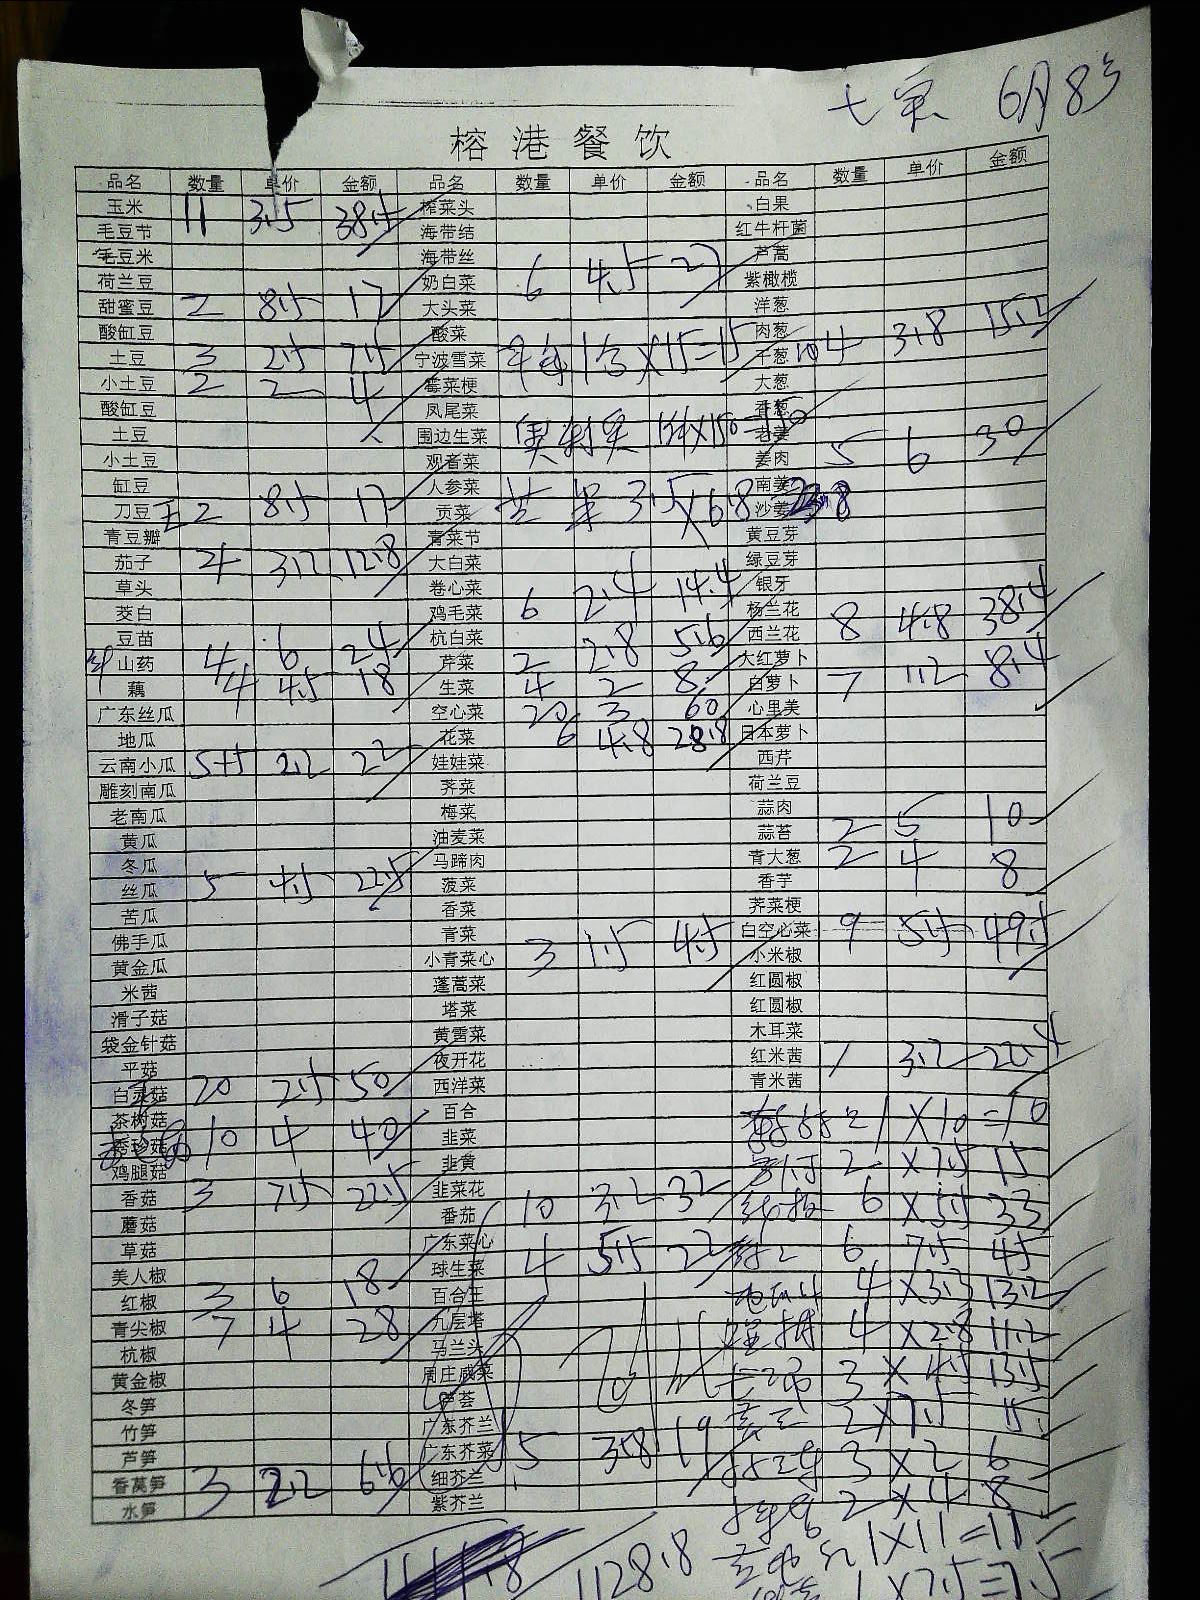 6月8号
榕港餐饮
品名 数量 单价 金额 品名 数量 单价 金额 品名 数量 单价 金额
玉米 11 3.5 38.5 榨菜头 白果
毛豆节 海带结 红牛杆菌
毛豆米 海带丝 芦蒿
荷兰豆 奶白菜 6 4.5 27 紫橄榄
甜蜜豆 2 8.5 17 大头菜 洋葱
酸缸豆 酸菜 肉葱
土豆 3 2.5 7.5 宁波雪菜 1 X15=15 干葱 4 3.8 15.2
小土豆 2 2 4 霉菜梗 大葱
酸缸豆 凤尾菜 香葱
土豆 围边生菜 老姜
小土豆 观音菜 姜肉 5 6 30
缸豆 人参菜 南姜
刀豆 2 8.5 17 贡菜 3.5 X6.8 23.8 沙姜
青豆瓣 青菜节 黄豆芽
茄子 4 3.2 12.8 大白菜 绿豆芽
草头 卷心菜 银牙
茭白 鸡毛菜 6 2.4 14.4 杨兰花
豆苗 6 杭白菜 西兰花 8 4.8 38.4
山药 4 24 芹菜 2 2.8 5.6 大红萝卜
藕 4 4.5 18 生菜 4 2 8 白萝卜 7 1.2 8.4
广东丝瓜 空心菜 20 3 60 心里美
地瓜 花菜 6 4.8 28.8 日本萝卜
云南小瓜 2.2 22 娃娃菜 西芹
雕刻南瓜 荠菜 荷兰豆
老南瓜 梅菜 蒜肉
黄瓜 油麦菜 蒜苔 2 5 10
冬瓜 马蹄肉 青大葱 2 4 8
丝瓜 5 4.5 22.5 菠菜 香芋
苦瓜 香菜 荠菜梗
佛手瓜 青菜 白空心菜 9 5.5 49.5
黄金瓜 小青菜心 3 1.5 4.5 小米椒
米茜 蓬蒿菜 红圆椒
滑子菇 塔菜 红圆椒
袋金针菇 黄雪菜 木耳菜
平菇 夜开花 红米茜 7 3.2 22.4
白灵菇 20 2.5 50 西洋菜 青米茜
茶树菇 百合 1 X10=10
秀珍菇 10 4 40 韭菜
鸡腿菇 韭黄 2 X7.5 15
香菇 3 7.5 22.5 韭菜花
蘑菇 番茄 10 3.2 32 6 X5.5 33
草菇 广东菜心 6 7.5 45
美人椒 球生菜 4 5.5 22
红椒 3 6 18 百合王 4 X3.3 13.2
青尖椒 7 4 28 九层塔 4 X2.8 11.2
杭椒 马兰头
黄金椒 周庄咸菜 3 X4.5 13.5
冬笋 芦荟
竹笋 广东芥兰 2X7.5 15
芦笋 广东芥菜 5 3.8 19 3 X2 6
香莴笋 3 2.2 6.6 细芥兰
水笋 紫芥兰 2 X4 8
1128.8 1X11=11
1 X7.5=7.5